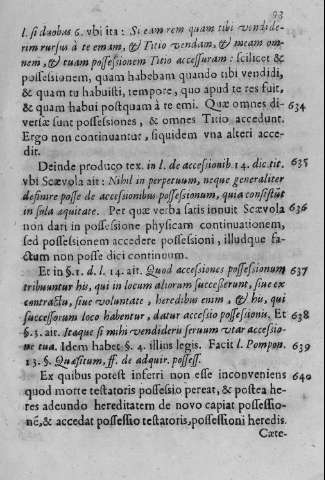 93
l. si duobus 6. vbi ita : Si eam rem quam tibi vendide-
rim rursus à te emam, & Titio vendam, & meam om-
nem, & tuam possessionem Titio accessuram : scilicet &
possessionem, quam habebam quando tibi vendidi,
& quam tu habuisti, tempore, quo apud te res fuit,
& quam habui postquam à te emi. Quæ omnes di- 634
versæ sunt possessiones, & omnes Titio accedunt.
Ergo non continuantur, siquidem vna alteri acce-
dit.
Deinde produco tex. in l. de accessionib. 14. dic. tit. 635
vbi Scævola ait : Nihil in perpetuum, neque generaliter
definire posse de accessionibus possessionum, quia consistūt
in sola æquitate. Per quæ verba satis innuit Scævola 636
non dari in possessione physicam continuationem,
sed possessionem accedere possessioni, illudque fa-
ctum non posse dici continuum.
Et in §. 1. d. l. 14. ait. Quod accessiones possessionum 637
tribuuntur his, qui in locum aliorum succeſſerunt, siue ex
contractu, siue voluntate, heredibus enim, & his, qui
successorum loco habentur, datur accessio possessionis. Et 638
§. 3. ait. Itaque si mihi vendideris seruum vtar accessio-
ne tua. Idem habet §. 4. illius legis. Facit l. Pompon. 639
13. §. Quæsitum, ff. de adquir. possess.
Ex quibus potest inferri non esse inconveniens 640
quod morte testatoris possessio pereat, & postea he-
res adeundo hereditatem de novo capiat possessio-
nē, & accedat possessio testatoris, possessioni heredis.
Cæte-